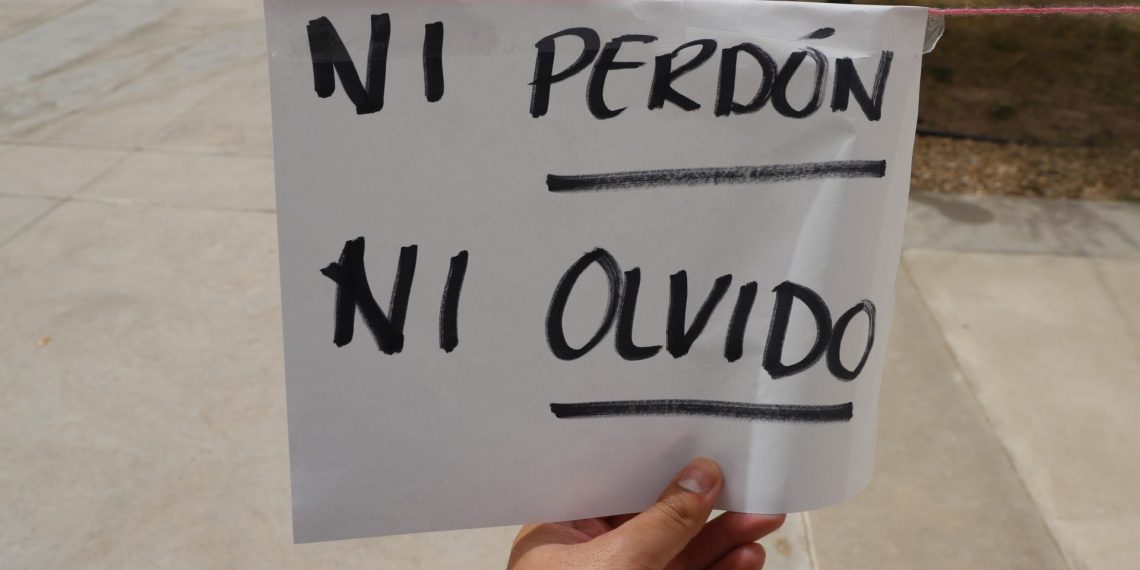 NI PERDÓN
NI OLVIDO